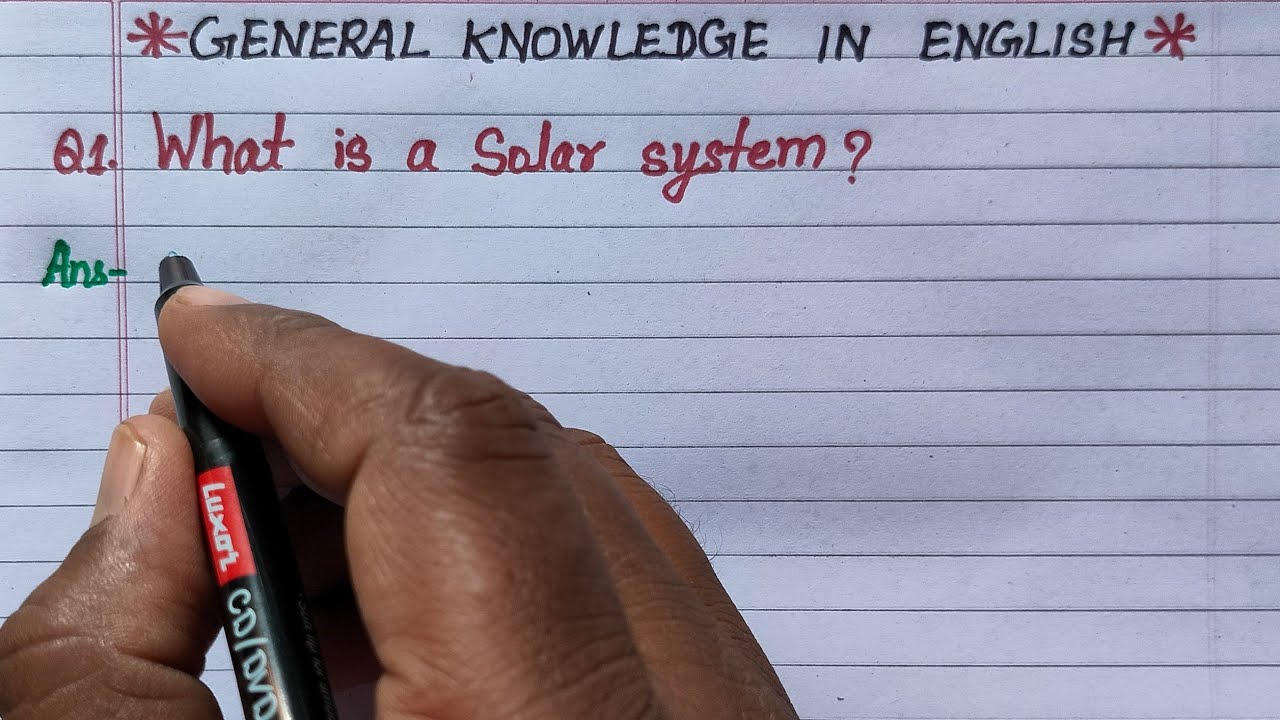 *GENERAL KNOWLEDGE IN ENGLISH*
Q1. What is a Solar system?
Ans-
Luxor
CD/DVD